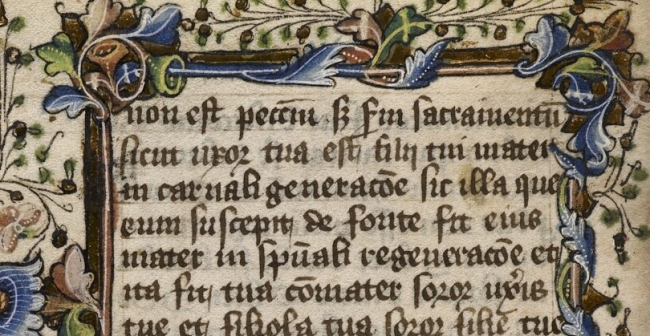 non est peccm̄ sꝫ scdm̄ sacramentū
sicut uxor tua est filij tui mater
in carnali generacōe sic illa que
eum suscepit de fonte fit eius
mater in spūali regeneracōe et
ita fit tua cōmater soror uxīs
tue et filiola tua soror filie tue